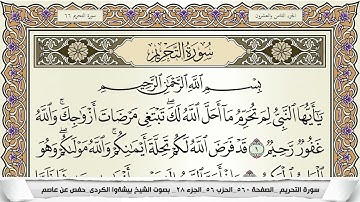 الجزء الثامن والعشرون
سورة التحريم ٦٦
سُورَةُ التَّحْرِيمِ
بِسْمِ اللَّهِ الرَّحْمَٰنِ الرَّحِيمِ
يَا أَيُّهَا النَّبِيُّ لِمَ تُحَرِّمُ مَا أَحَلَّ اللَّهُ لَكَ تَبْتَغِي مَرْضَاتَ أَزْوَاجِكَ وَاللَّهُ
غَفُورٌ رَحِيمٌ ١ قَدْ فَرَضَ اللَّهُ لَكُمْ تَحِلَّةَ أَيْمَانِكُمْ وَاللَّهُ مَوْلَاكُمْ وَهُوَ
سورة التحريم _ الصفحة ٥٦٠_ الحزب ٥٦_ الجزء ٢٨_ بصوت الشيخ بيشهوا الكردي حفص عن عاصم